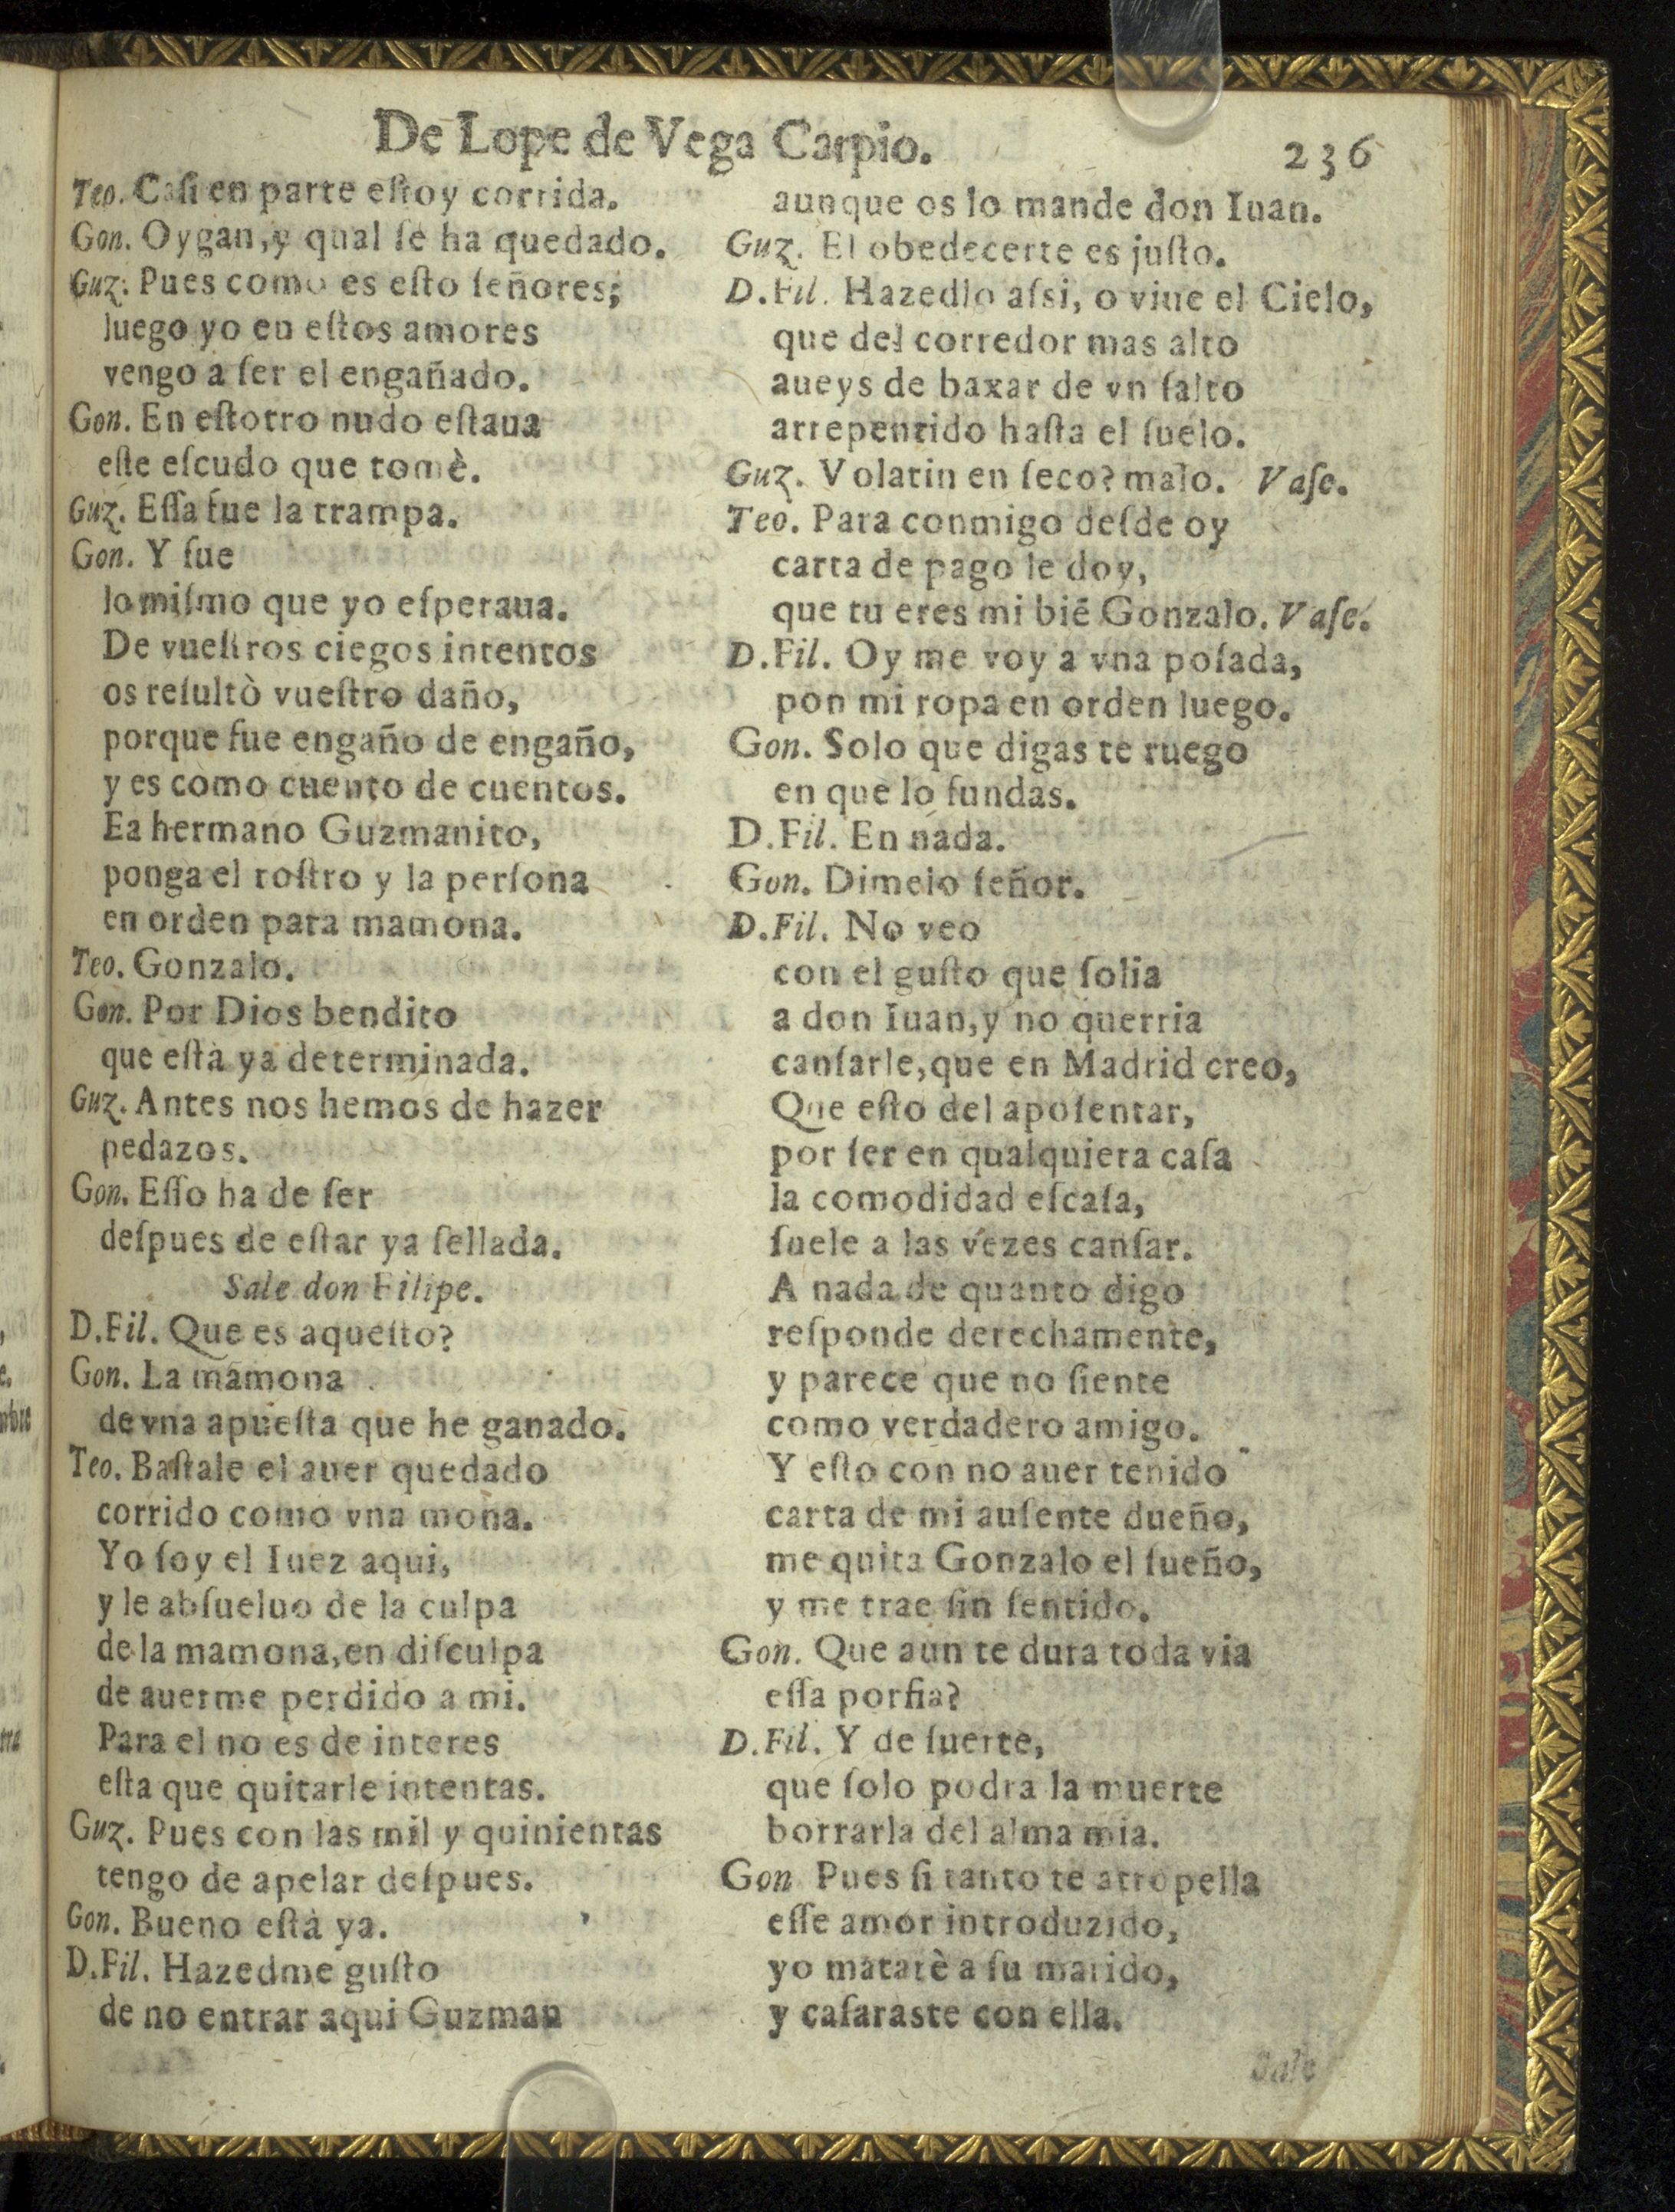 De Lope de Vega Carpio.
236
Teo. Casi en parte estoy corrida.
Gon. Oygan, y qual se ha quedado.
Guz. Pues como es esto señores;
luego yo en estos amores
vengo a ser el engañado.
Gon. En estotro nudo estaua
este escudo que tomè.
Guz. Essa fue la trampa.
Gon. Y fue
lo mismo que yo esperaua.
De vuestros ciegos intentos
os resultò vuestro daño,
porque fue engaño de engaño,
y es como cuento de cuentos.
Ea hermano Guzmanito,
ponga el rostro y la persona
en orden para mamona.
Teo. Gonzalo.
Gon. Por Dios bendito
que està ya determinada.
Guz. Antes nos hemos de hazer
pedazos.
Gon. Esso ha de ser
despues de estar ya sellada.
Sale don Filipe.
D.Fil. Que es aquesto?
Gon. La mamona
de vna apuesta que he ganado.
Teo. Bastale el auer quedado
corrido como vna mona.
Yo soy el Iuez aqui,
y le absueluo de la culpa
de la mamona, en disculpa
de auerme perdido a mi.
Para el no es de interes
esta que quitarle intentas.
Guz. Pues con las mil y quinientas
tengo de apelar despues.
Gon. Bueno està ya.
D.Fil. Hazedme gusto
de no entrar aqui Guzman
aunque os lo mande don Iuan.
Guz. El obedecerte es justo.
D.Fil. Hazedlo assi, o viue el Cielo,
que del corredor mas alto
aueys de baxar de vn salto
arrepentido hasta el suelo.
Guz. Volatin en seco? malo. Vase.
Teo. Para conmigo desde oy
carta de pago le doy,
que tu eres mi biẽ Gonzalo. Vase.
D.Fil. Oy me voy a vna posada,
pon mi ropa en orden luego.
Gon. Solo que digas te ruego
en que lo fundas.
D.Fil. En nada.
Gon. Dimelo señor.
D.Fil. No veo
con el gusto que solia
a don Iuan, y no querria
cansarle, que en Madrid creo,
Que esto del aposentar,
por ser en qualquiera casa
la comodidad escasa,
suele a las vezes cansar.
A nada de quanto digo
responde derechamente,
y parece que no siente
como verdadero amigo.
Y esto con no auer tenido
carta de mi ausente dueño,
me quita Gonzalo el sueño,
y me trae sin sentido.
Gon. Que aun te dura toda via
essa porfia?
D.Fil. Y de suerte,
que solo podra la muerte
borrarla del alma mia.
Gon Pues si tanto te atropella
esse amor introduzido,
yo matarè a su marido,
y casaraste con ella.
Sale